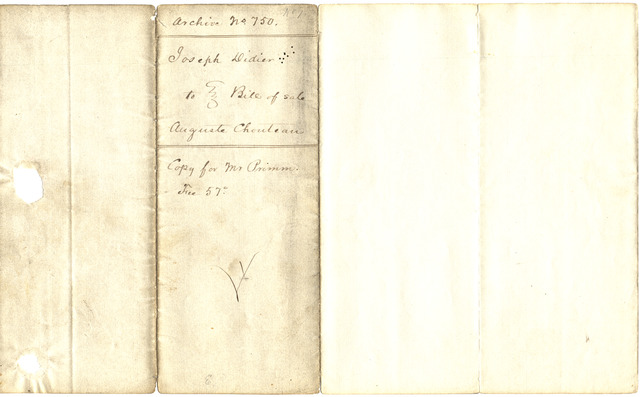 No 1
Archive No 750.
Joseph Didier
to } Bill of sale
Auguste Chouteau
Copy for Mr Primm.
Fee 57c